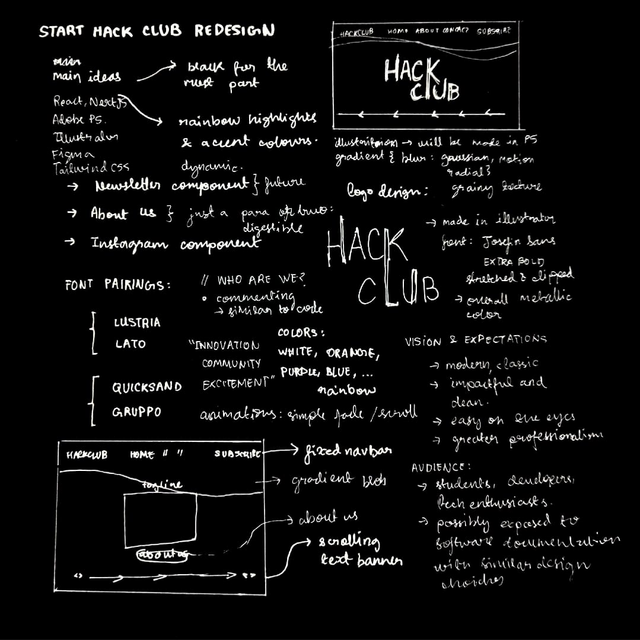 START HACK CLUB REDESIGN
main ideas
React, NextJS
Adobe PS.
Illustrator
Figma
Tailwind CSS
→ black for the
most part
rainbow highlights
& accent colours.
dynamic.
→ Newsletter component } future
→ About us } just a para of two:
digestible
→ Instagram component
HACKCLUB HOME ABOUT CONTACT SUBSCRIBE
HACK
CLUB
→ will be made in PS
gradient { blur: gaussian, motion
radial }
grainy texture
logo design:
HACK
CLUB
→ made in illustrator
font: Josefin Sans
EXTRA BOLD
stretched & clipped
→ overall metallic
color
FONT PAIRINGS:
LUSTRIA
LATO
QUICKSAND
GRUPPO
// WHO ARE WE?
• commenting
→ similar to code
"INNOVATION
COMMUNITY
EXCITEMENT"
COLORS:
WHITE, ORANGE,
PURPLE, BLUE, ...
rainbow
animations: simple fade / scroll
VISION & EXPECTATIONS
→ modern, classic
→ impactful and
clean.
→ easy on the eyes
→ greater professionalism
AUDIENCE:
→ students, developers,
tech enthusiasts.
→ possibly exposed to
software documentation
with similar design
choices
HACKCLUB HOME " " SUBSCRIBE
tagline
about us
→ fixed navbar
→ gradient blob
→ about us
→ scrolling
text banner